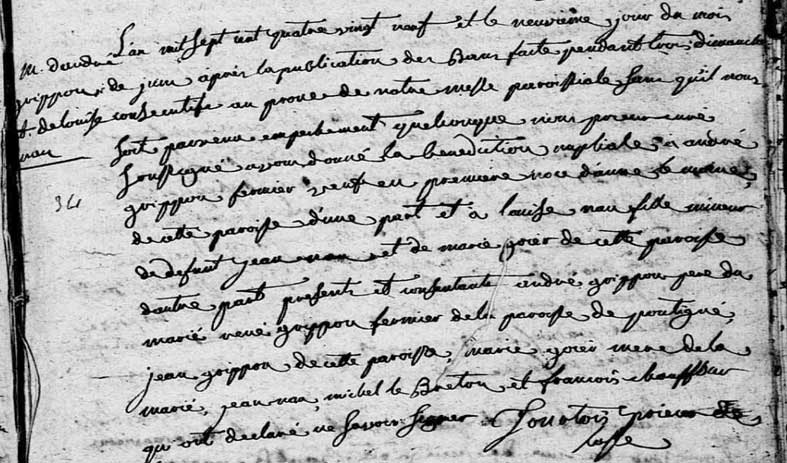 m. dandré
grippon
et. de louise
nau
34
L'an mil sept cent quatre vingt neuf et le neuvieme jour du mois
de juin apres la publication des Bans faite pendant trois dimanche
consecutifs au prone de notre messe paroissiale sans qu'il nous
soit parvenu empechement quelconque nous prieur curé
soussigné avons donné la benediction nuptiale a andré
grippon fermier veuf en premiere noce d'anne
de cette paroisse d'une part et a louise nau fille mineur
de defunt jean nau et de marie goier de cette paroisse
dautre part presents et consentants andré grippon pere du
marié rené grippon fermier de la paroisse de pontigné
jean grippon de cette paroisse, marie goier mere de la
marié, jean nau, michel le Breton et francois
qui ont declaré ne savoir signer prieur de